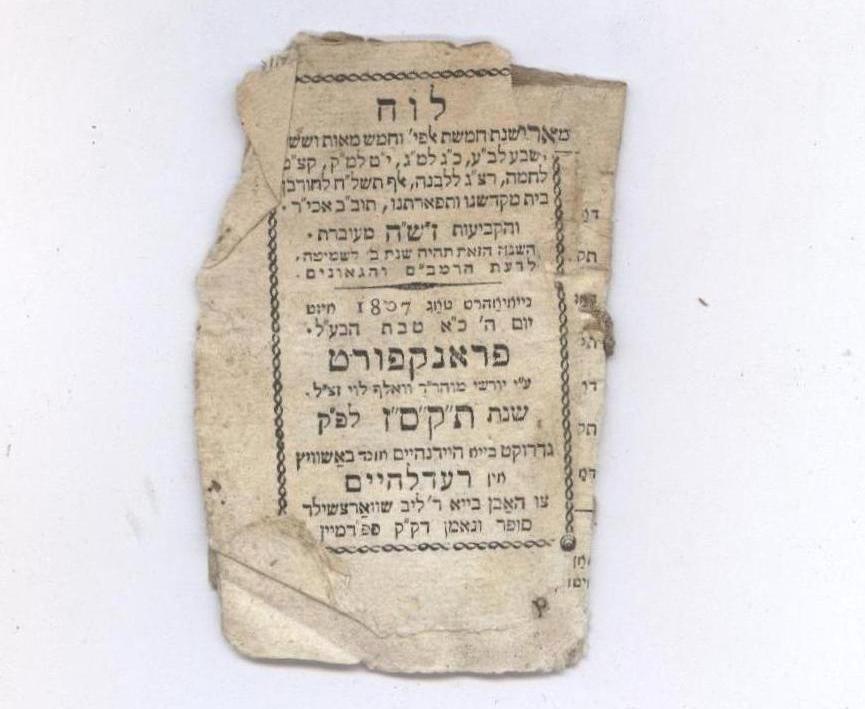 לוח
משנת חמשת אלפי׳ וחמש מאות וששי
שבע לב״ע, כ״ג למ״ג, י״ט למ״ק, קצ״מ
לחמה, רצ״ג ללבנה, אף תשל״ח לחורבן
בית מקדשנו ותפארתנו, תוב״ב אכי״ר.
והקביעות ז״ש״ה מעוברת.
השנה הזאת תהיה שנת ב׳ לשמיטה,
לדעת הרמב״ם והגאונים.
נייאיאהרס טאג 1807 איזט
יום ה׳ כ״א טבת הבע״ל.
פראנקפורט
ע״י יורשי מוהר״ר וואלף לוי זצ״ל.
שנת ת״ק״ס״ז לפ״ק
גדרוקט ביים היידנהיים אונד באשוויץ
אין רעדלהיים
צו האבן בייא ר׳ ליב שווארצשילד
סופר ונאמן דק״ק פפ״דמיין